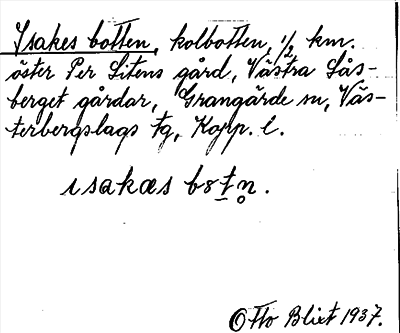 Isakes botten, kolbotten, 1/2 km.
öster Per Litens gård, Västra Lås-
berget gårdar, Grangärde sn, Väs-
terbergslags tg, Kopp. l.
ısakæs bɞtn̥.
Otto Blixt 1937.